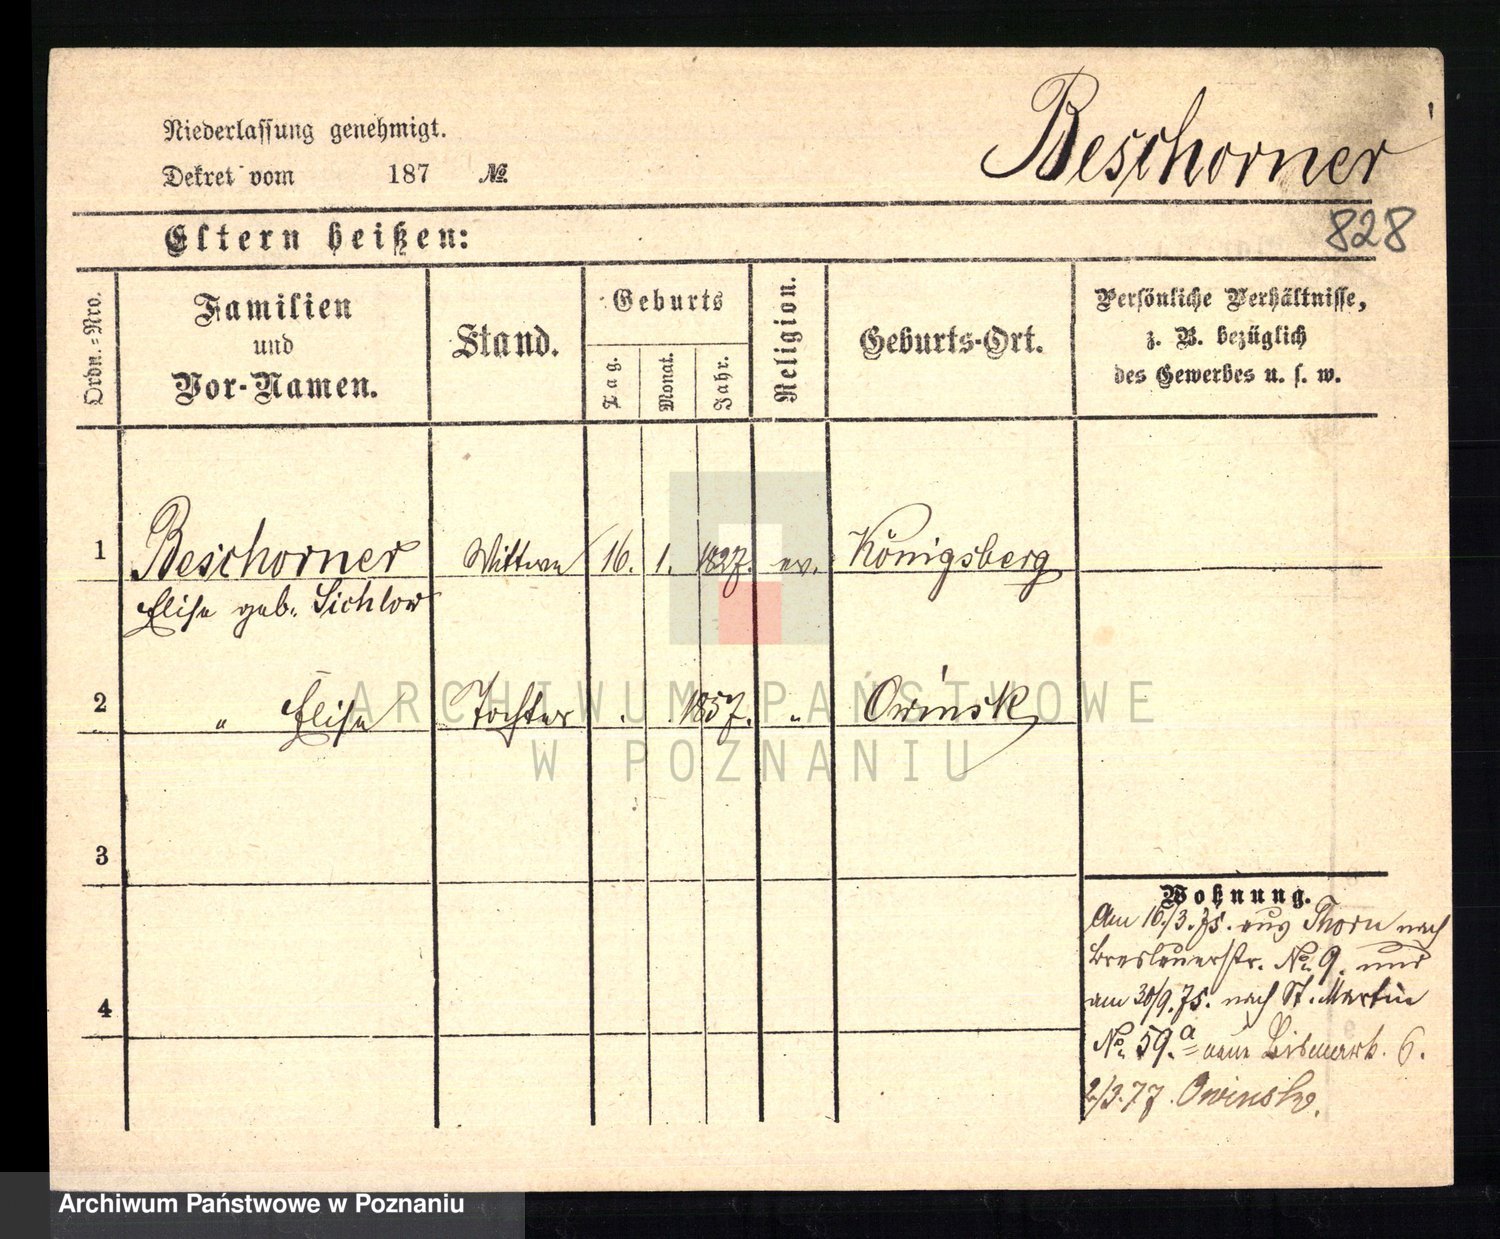 Niederlassung genehmigt.
Dekret vom 187 №
Beschorner
828
Eltern heißen:
Ordn.-Nro.
Familien
und
Vor-Namen.
Stand.
Geburts
Tag.
Monat.
Jahr.
Religion.
Geburts-Ort.
Persönliche Verhältnisse,
z. B. bezüglich
des Gewerbes u. s. w.
1 Beschorner Wittwe 16. 1. 1827. ev. Königsberg
Elise geb. Sichlow
2 " Elise Tochter . . 1857. " Owinsk
ARCHIWUM PAŃSTWOWE
W POZNANIU
3
4
Wohnung.
Am 16./3.75. aus Thorn nach
Breslauerstr. No. 9. und
am 30/9.75. nach St. Martin
No. 59.a Bismark. 6.
2/3.77. Owinsk.
Archiwum Państwowe w Poznaniu